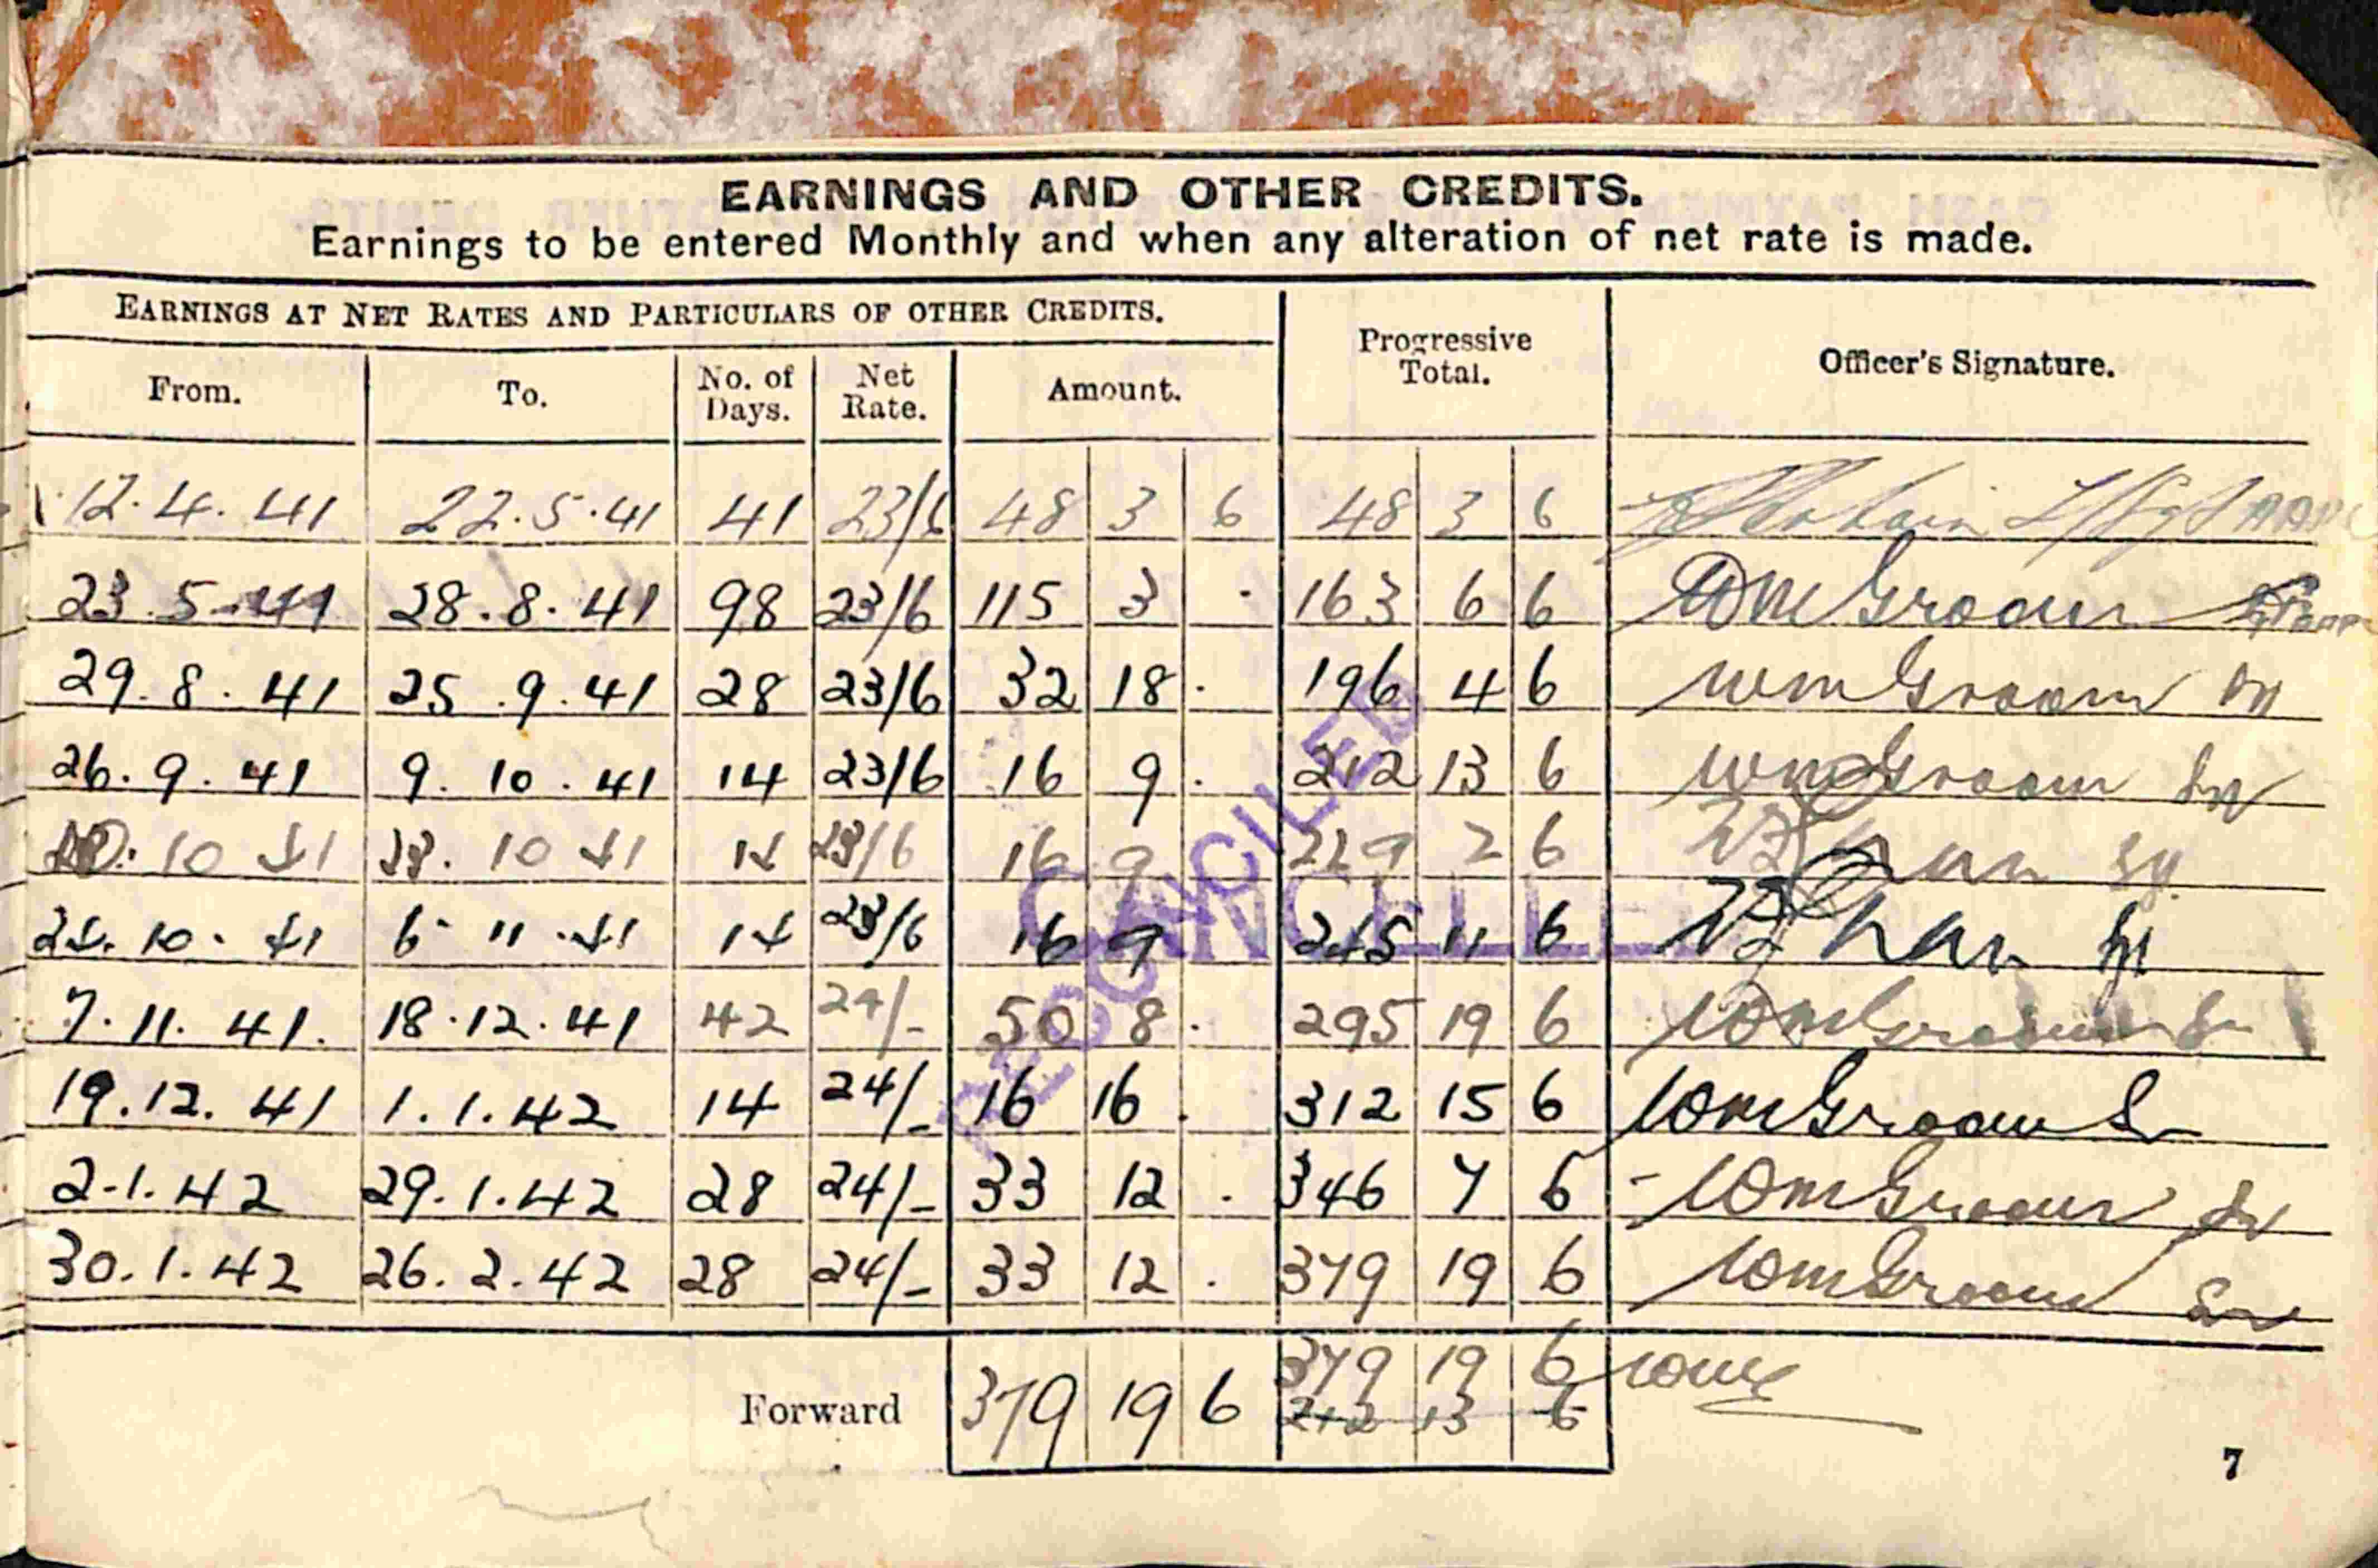 EARNINGS AND OTHER CREDITS.
Earnings to be entered Monthly and when any alteration of net rate is made.
EARNINGS AT NET RATES AND PARTICULARS OF OTHER CREDITS.
Progressive Total.
Officer's Signature.
From. To. No. of Days. Net Rate. Amount.
12.4.41 22.5.41 41 23/6 48 3 6 48 3 6
23.5.41 28.8.41 98 23/6 115 3 · 163 6 6 WmGroom
29.8.41 25.9.41 28 23/6 32 18 · 196 4 6 WmGroom
26.9.41 9.10.41 14 23/6 16 9 · 212 13 6 WmGroom
10.10 41 23.10 41 14 23/6 16 9 229 2 6
24.10.41 6.11.41 14 23/6 16 9 245 11 6
7.11.41. 18.12.41 42 24/- 50 8 · 295 19 6 WmGroom
19.12.41 1.1.42 14 24/- 16 16 · 312 15 6 WmGroom
2.1.42 29.1.42 28 24/- 33 12 · 346 7 6 WmGroom
30.1.42 26.2.42 28 24/- 33 12 · 379 19 6 WmGroom
RECONCILED
CANCELLED
Forward 379 19 6 379 19 6
212 13 6
7